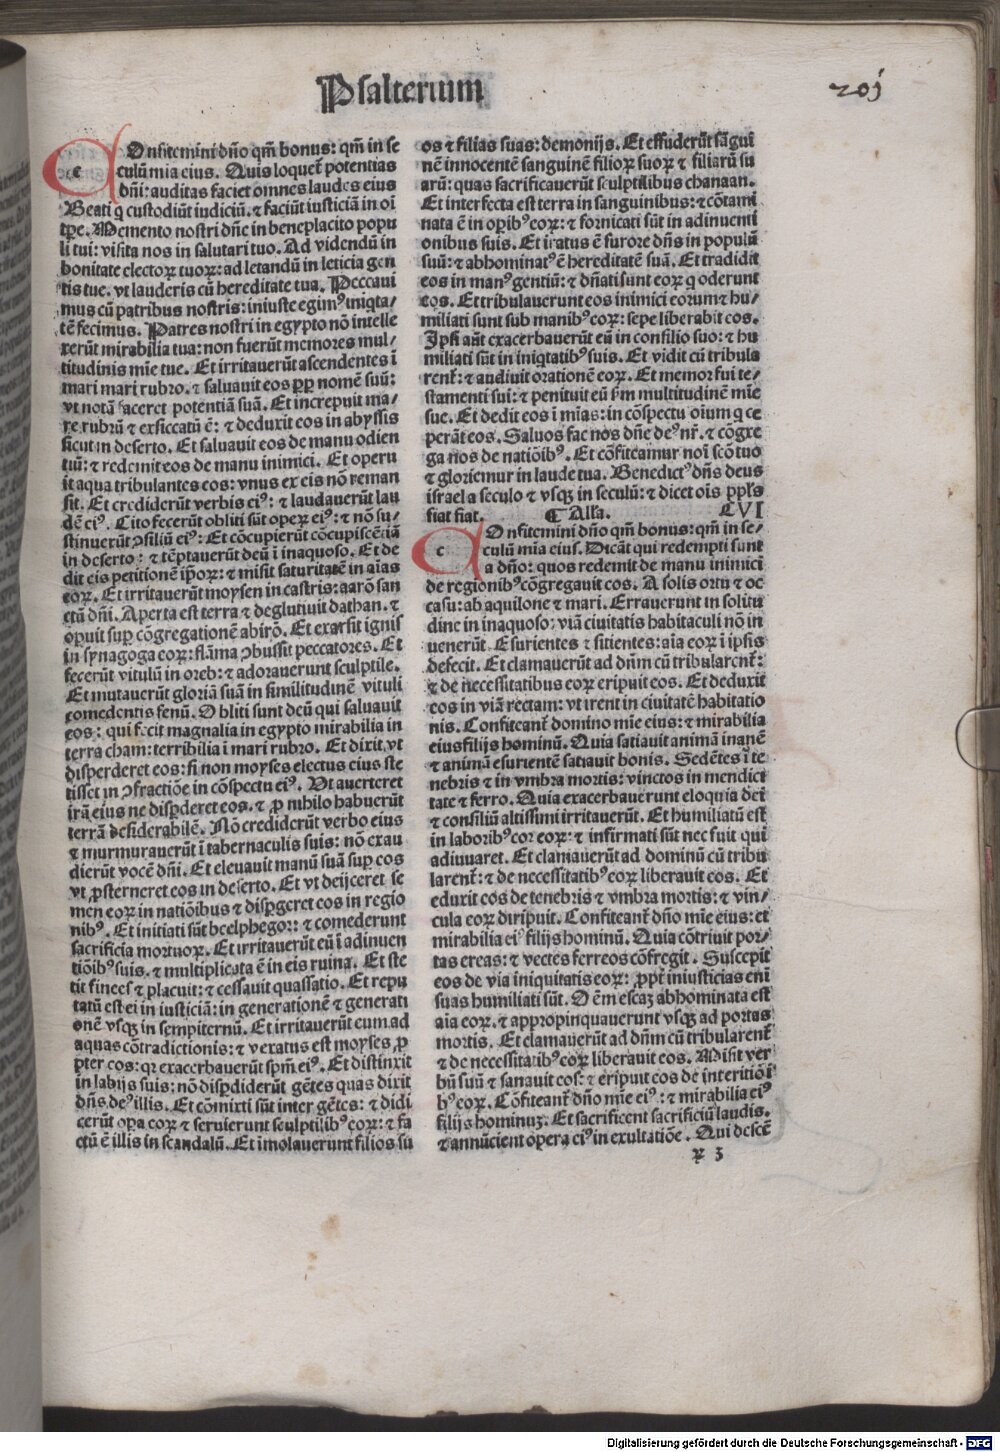 Psalterium
201
COnfitemini dño qm̃ bonus: qm̃ in se
culũ mia eius. Quis loquet᷑ potentias
dñi: auditas faciet omnes laudes eius
Beati q custodiũt iudiciũ. ⁊ faciũt iusticiã in oĩ
tp̃e. Memento nostri dñe in beneplacito popu
li tui: visita nos in salutari tuo. Ad videndũ in
bonitate electoꝝ tuoꝝ: ad letandũ in leticia gen
tis tue. vt lauderis cũ hereditate tua. Peccaui
mus cũ patribus nostris: iniuste egimꝰ iniq̃ta⸗
tẽ fecimus. Patres nostri in egypto nõ intelle
xerũt mirabilia tua: non fuerũt memores mul⸗
titudinis mĩe tue. Et irritauerũt ascendentes ĩ
mari mari rubro. ⁊ saluauit eos ꝓp̃ nomẽ suũ:
vt notã faceret potentiã suã. Et increpuit ma⸗
re rubrũ ⁊ exsiccatũ ẽ: ⁊ deduxit eos in abyssis
sicut in deserto. Et saluauit eos de manu odien
tiũ: ⁊ redemit eos de manu inimici. Et operu
it aqua tribulantes eos: vnus ex eis nõ reman
sit. Et crediderũt verbis eiꝰ: ⁊ laudauerũt lau
dẽ eiꝰ. Cito fecerũt obliti sũt opeꝝ eiꝰ: ⁊ nõ su⸗
stinuerũt ꝯsiliũ eiꝰ: Et cõcupierũt cõcupiscẽtiã
in deserto: ⁊ tẽptauerũt deũ ĩ inaquoso. Et de
dit eis petitionẽ ip̃oꝝ: ⁊ misit saturitatẽ in aĩas
eoꝝ. Et irritauerũt moysen in castris: aarõ san
ctũ dñi. Aperta est terra ⁊ deglutiuit dathan. ⁊
operuit sup cõgregationẽ abirõ. Et exarsit ignis
in synagoga eoꝝ: flãma ꝯbussit peccatores. Et
fecerũt vitulũ in oreb: ⁊ adorauerunt sculptile.
Et mutauerũt gloriã suã in similitudinẽ vituli
comedentis fenũ. Obliti sunt deũ qui saluauit
eos: qui fecit magnalia in egypto mirabilia in
terra cham: terribilia ĩ mari rubro. Et dixit vt
disperderet eos: si non moyses electus eius ste
tisset in ꝯfractiõe in cõspectu eiꝰ. Ut auerteret
irã eius ne disꝑderet eos. ⁊ ꝓ nihilo habuerũt
terrã desiderabilẽ. Nõ crediderũt verbo eius
⁊ murmurauerũt ĩ tabernaculis suis: nõ exau
dierũt vocẽ dñi. Et eleuauit manũ suã sup eos
vt ꝓsterneret eos in deserto. Et vt deijceret se
men eoꝝ in natiõibus ⁊ disꝑgeret eos in regio
nibꝰ. Et initiati sũt beelphegor: ⁊ comederunt
sacrificia mortuoꝝ. Et irritauerũt eũ ĩ adinuen
tiõibꝰ suis. ⁊ multiplicata ẽ in eis ruina. Et ste
tit finees ⁊ placuit: ⁊ cessauit quassatio. Et repu
tatũ est ei in iusticiã: in generationẽ ⁊ generati
onẽ vsqꝫ in sempiternũ. Et irritauerũt eum ad
aquas cõtradictionis: ⁊ vexatus est moyses ꝓ
pter eos: qr exacerbauerũt spm̃ eiꝰ. Et distinxit
in labijs suis: nõ disꝑdiderũt gẽtes quas dixit
dñs deꝰ illis. Et cõmixti sũt inter gẽtes: ⁊ didi
cerũt opa eoꝝ ⁊ seruierunt sculptilibꝰ eoꝝ: ⁊ fa
ctũ ẽ illis in scandalũ. Et imolauerunt filios su
os ⁊ filias suas: demonijs. Et effuderũt sãgui
nẽ innocentẽ sanguinẽ filioꝝ suoꝝ ⁊ filiarũ su
arũ: quas sacrificauerũt sculptilibus chanaan.
Et interfecta est terra in sanguinibus: ⁊ cõtami
nata ẽ in opibꝰ eoꝝ: ⁊ fornicati sũt in adinuenti
onibus suis. Et iratus ẽ furore dñs in populũ
suũ: ⁊ abhominatꝰ ẽ hereditatẽ suã. Et tradidit
eos in manꝰ gentiũ: ⁊ dñati sunt eoꝝ q oderunt
eos. Et tribulauerunt eos inimici eorum ⁊ hu⸗
miliati sunt sub manibꝰ eoꝝ: sepe liberabit eos.
Ipsi aũt exacerbauerũt eũ in consilio suo: ⁊ hu
miliati sũt in iniq̃tatibꝰ suis. Et vidit cũ tribula
rent᷑: ⁊ audiuit orationẽ eoꝝ. Et memor fui te⸗
stamenti sui: ⁊ penituit eũ sm̃ multitudinẽ mĩe
sue. Et dedit eos ĩ mĩas: in cõspectu oium q ce
perãt eos. Saluos fac nos dñe deꝰ nr̃. ⁊ cõgre
ga nos de natiõibꝰ. Et cõfiteamur noĩ scõ tuo
⁊ gloriemur in laude tua. Benedictꝰ dñs deus
israel a seculo ⁊ vsqꝫ in seculũ: ⁊ dicet oĩs ppl̃s
fiat fiat. ¶ Alľa. CVI
COnfitemini dño qm̃ bonus: qm̃ in se⸗
culũ mĩa eius. Dicãt qui redempti sunt
a dño: quos redemit de manu inimici
de regionibꝰ cõgregauit eos. A solis ortu ⁊ oc
casu: ab aquilone ⁊ mari. Errauerunt in solitu
dine in inaquoso: viã ciuitatis habitaculi nõ in
uenerũt. Esurientes ⁊ sitientes: aĩa eoꝝ ĩ ipsis
defecit. Et clamauerũt ad dñm cũ tribularent᷑:
⁊ de necessitatibus eoꝝ eripuit eos. Et deduxit
eos in viã rectam: vt irent in ciuitatẽ habitatio
nis. Confiteant᷑ domino mĩe eius: ⁊ mirabilia
eius filijs hominũ. Quia satiauit animã inanẽ
⁊ animã esurientẽ satiauit bonis. Sedẽtes ĩ te
nebris ⁊ in vmbra mortis: vinctos in mendici
tate ⁊ ferro. Quia exacerbauerunt eloquia dei
⁊ consiliũ altissimi irritauerũt. Et humiliatũ est
in laboribꝰ cor eoꝝ: ⁊ infirmati sũt nec fuit qui
adiuuaret. Et clamauerũt ad dominũ cũ tribu
larent᷑: ⁊ de necessitatibꝰ eoꝝ liberauit eos. Et
eduxit eos de tenebris ⁊ vmbra mortis: ⁊ vin⸗
cula eoꝝ diripuit. Confiteant᷑ dño mĩe eius: et
mirabilia eiꝰ filijs hominũ. Quia cõtriuit por⸗
tas ereas: ⁊ vectes ferreos cõfregit. Suscepit
eos de via iniquitatis eoꝝ: ꝓpt᷑ iniusticias eni
suas humiliati sũt. Oẽm escaꝫ abhominata est
aĩa eoꝝ. ⁊ appropinquauerunt vsqꝫ ad portas
mortis. Et clamauerũt ad dñm cũ tribularent᷑
⁊ de necessitatibꝰ eoꝝ liberauit eos. Misit ver
bũ suũ ⁊ sanauit eos: ⁊ eripuit eos de interitiõĩ
bꝰ eoꝝ. Cõfiteant᷑ dño mĩe eiꝰ: ⁊ mirabilia eiꝰ
filijs hominuꝫ. Et sacrificent sacrificiũ laudis.
⁊ annũcient opera eiꝰ in exultatiõe. Qui descẽ
ꝝ 3
Digitalisierung gefördert durch die Deutsche Forschungsgemeinschaft - DFG